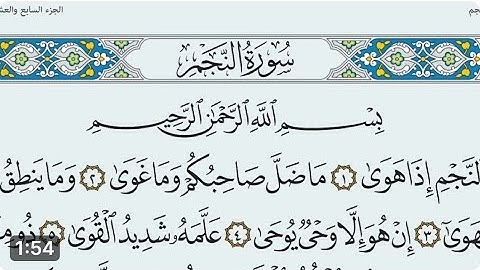 الجزء السابع والعش
جم
سُورَةُ النَّجْمِ
بِسْمِ ٱللَّهِ ٱلرَّحْمَٰنِ ٱلرَّحِيمِ
لنَّجْمِ إِذَا هَوَىٰ ١ مَا ضَلَّ صَاحِبُكُمْ وَمَا غَوَىٰ ٢ وَمَا يَنطِقُ
هَوَىٰ ٣ إِنْ هُوَ إِلَّا وَحْىٌ يُوحَىٰ ٤ عَلَّمَهُۥ شَدِيدُ ٱلْقُوَىٰ ٥ ذُو م
1:54